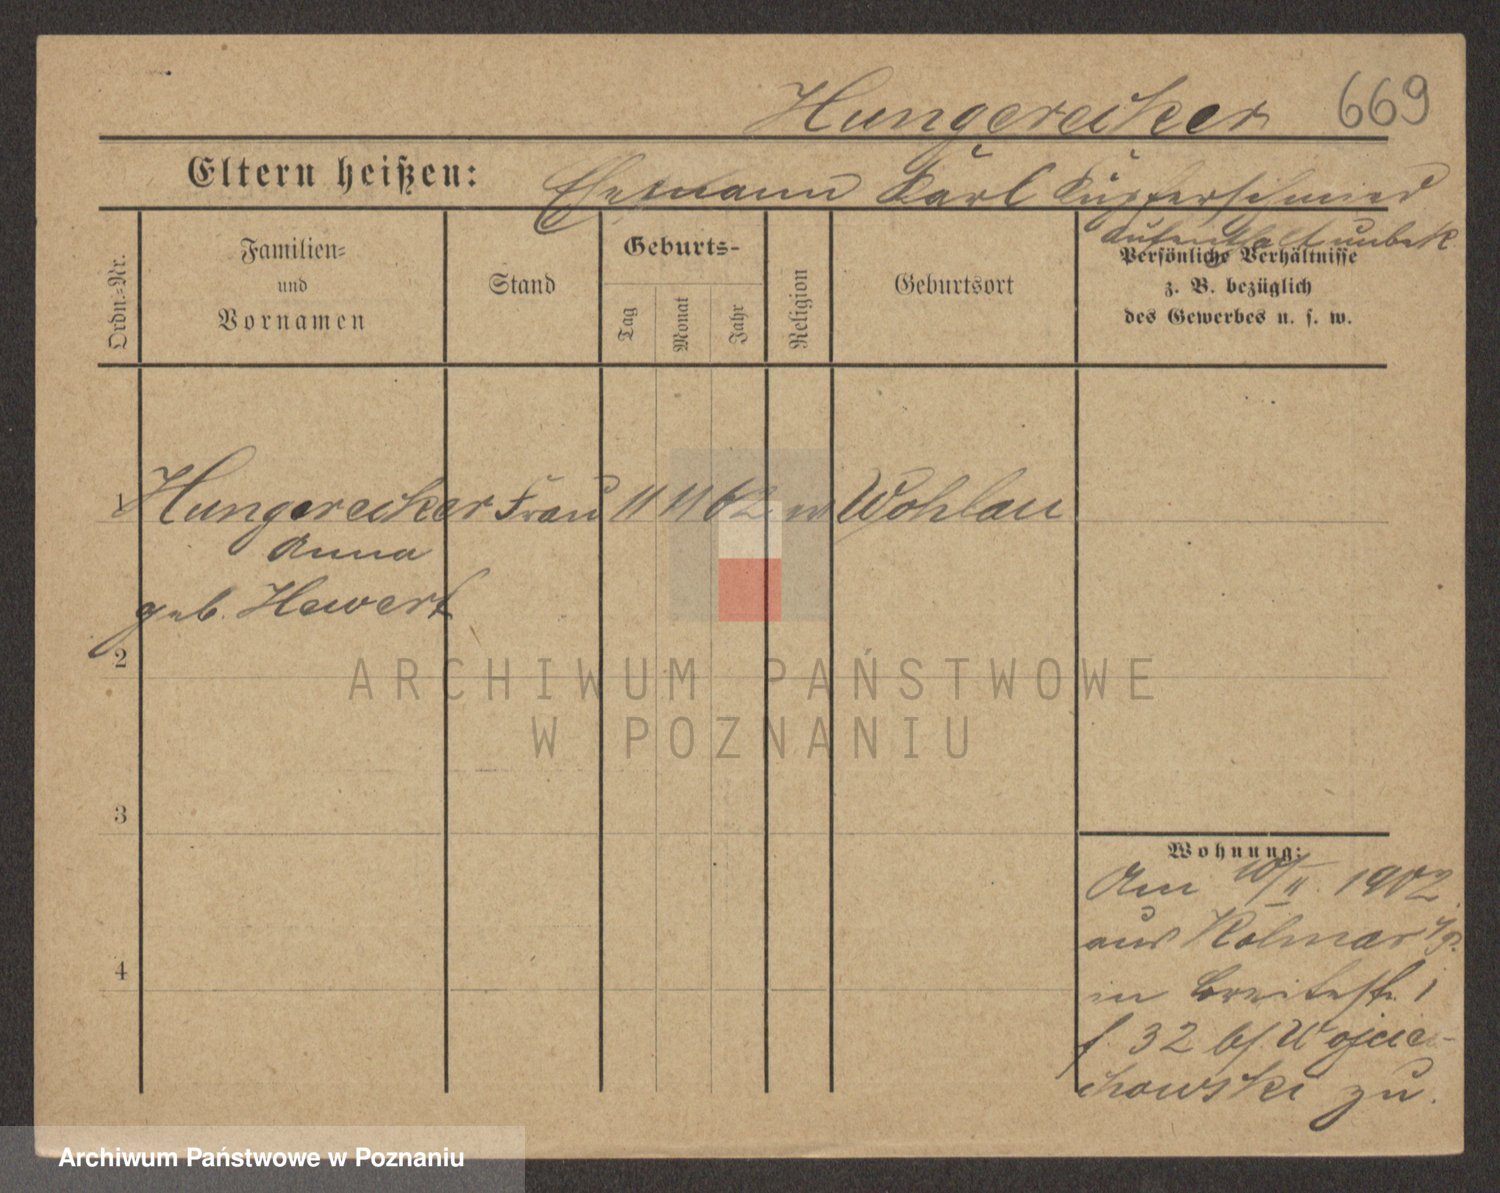 Hungerecker 669
Eltern heißen: Ehemann Karl Kupferschmied
Aufenthalt unbek
Ordn.=Nr.
Familien=
und
Vornamen
Stand
Geburts-
Tag
Monat
Jahr
Religion
Geburtsort
Persönliche Verhältnisse
z. B. bezüglich
des Gewerbes u. s. w.
1 Hungerecker Frau 11 11 62 Wohlau
Anna
geb. Hewert
2
3
4
Wohnung:
Am 10/II. 1902
aus Kolmar i/P.
in Breitestr. 1
f. 32 bf. Wojcie-
chowski zu.
ARCHIWUM PAŃSTWOWE
W POZNANIU
Archiwum Państwowe w Poznaniu